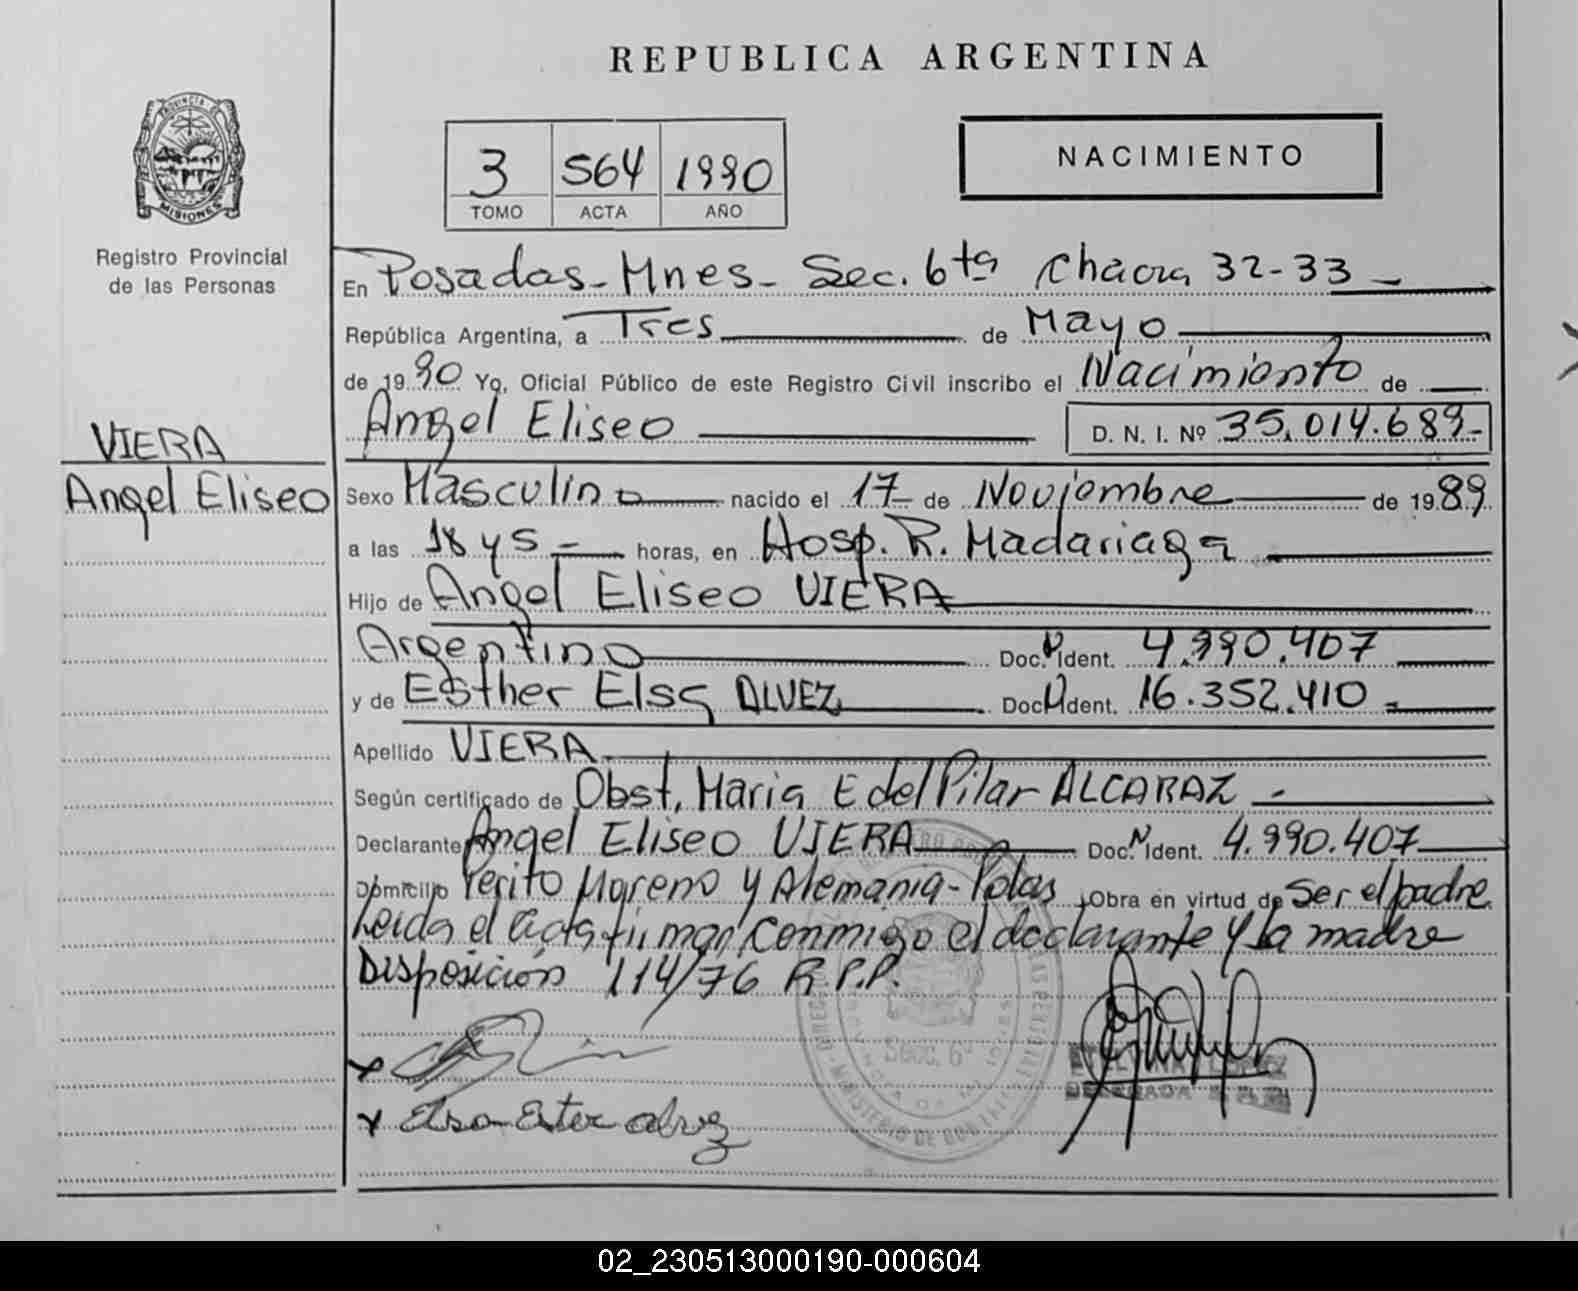 REPUBLICA ARGENTINA
PROVINCIA DE MISIONES
3 564 1990
TOMO ACTA AÑO
NACIMIENTO
Registro Provincial
de las Personas
En Posadas - Mnes - Sec. 6ta Chacra 32-33
República Argentina, a Tres de Mayo
de 1990 Yo, Oficial Público de este Registro Civil inscribo el Nacimiento de
Angel Eliseo D. N. I. Nº 35.014.689-
VIERA
Angel Eliseo
Sexo Masculino nacido el 17 de Noviembre de 1989
a las 18 y 5 horas, en Hosp. R. Madariaga
Hijo de Angel Eliseo VIERA
Argentino Doc. N Ident. 4.990.407
y de Esther Elsa ALVEZ Doc N Ident. 16.352.410
Apellido VIERA
Según certificado de Obst. Maria E del Pilar ALCARAZ
Declarante Angel Eliseo VIERA Doc. N Ident. 4.990.407
Domicilio Perito Moreno y Alemania - Pdas Obra en virtud de Ser el padre
Leida el acta firman conmigo el declarante y la madre
Disposición 114/76 R.P.P.
SECC. 6ª
Elsa Ester alvez
LOPEZ
02_230513000190-000604